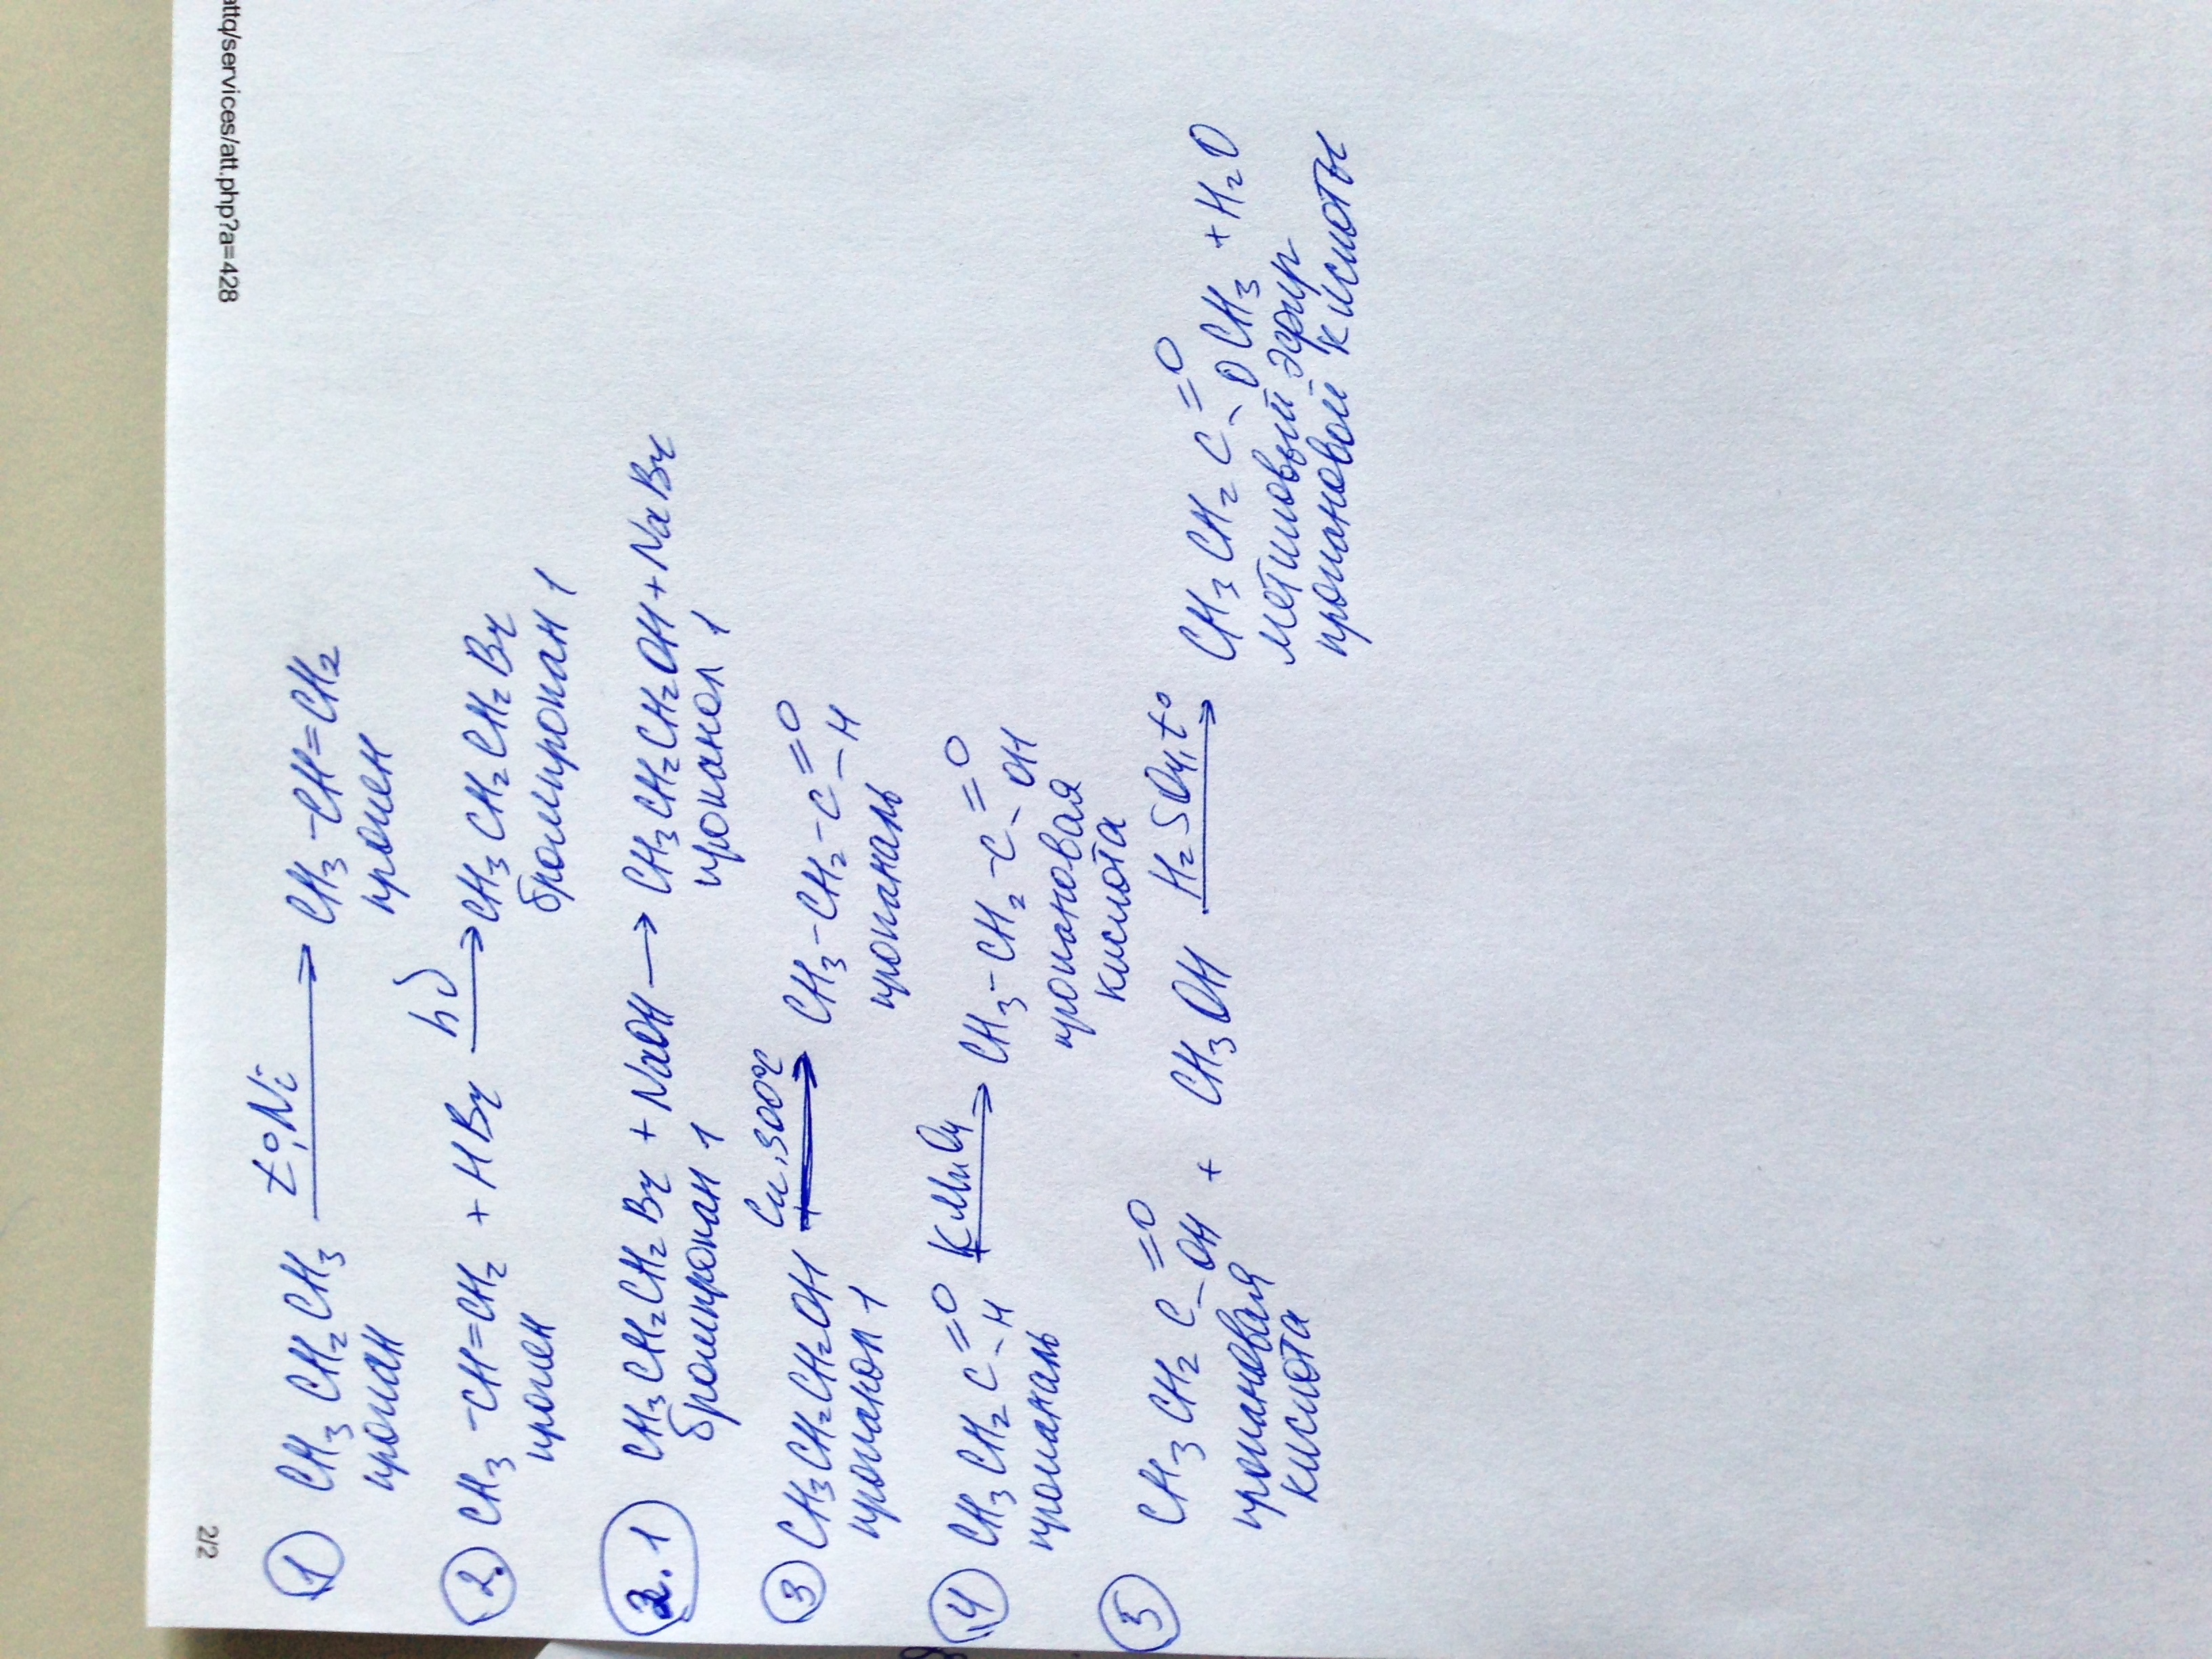 attq/services/att.php?a=428
2/2
① CH₃CH₂CH₃ t°,Ni → CH₃-CH=CH₂
пропан пропен
② CH₃-CH=CH₂ + HBr hυ → CH₃CH₂CH₂Br
пропен бромпропан 1
2.1 CH₃CH₂CH₂Br + NaOH → CH₃CH₂CH₂OH + NaBr
бромпропан 1 пропанол 1
③ CH₃CH₂CH₂OH Cu,300°C → CH₃-CH₂-C=O -H
пропанол-1 пропаналь
④ CH₃CH₂C=O -H KMnO₄ → CH₃-CH₂-C=O -OH
пропаналь пропановая
кислота
⑤ CH₃CH₂C=O -OH + CH₃OH H₂SO₄,t° → CH₃CH₂C=O -OCH₃ + H₂O
пропановая метиловый эфир
кислота пропановой кислоты